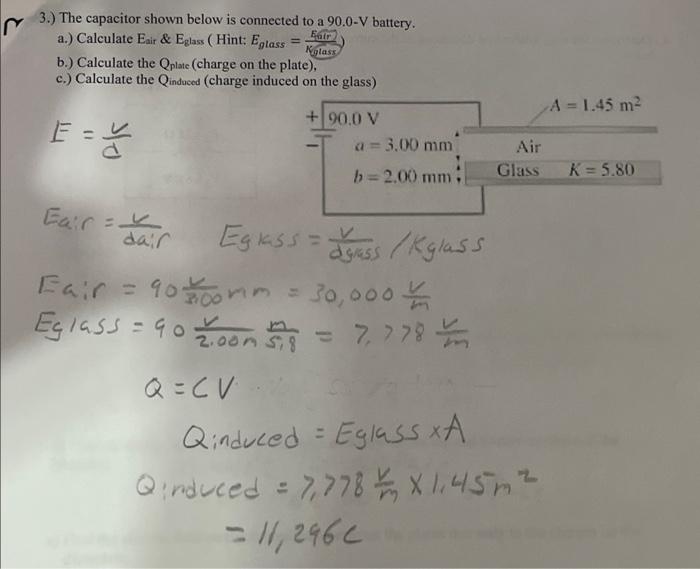 3.) The capacitor shown below is connected to a 90.0-V battery.
a.) Calculate Eair & Eglass ( Hint: Eglass = Eair / Kglass )
b.) Calculate the Qplate (charge on the plate),
c.) Calculate the Qinduced (charge induced on the glass)
A = 1.45 m²
+ 90.0 V
−
a = 3.00 mm
Air
b = 2.00 mm
Glass K = 5.80
E = V/d
Eair = V/dair
Eglass = V/dglass / Kglass
Eair = 90 V/3.00 mm = 30,000 V/m
Eglass = 90 V/2.00m m/5.8 = 7,778 V/m
Q = CV
Qinduced = Eglass x A
Qinduced = 7,778 V/m x 1.45m²
= 11,296 C